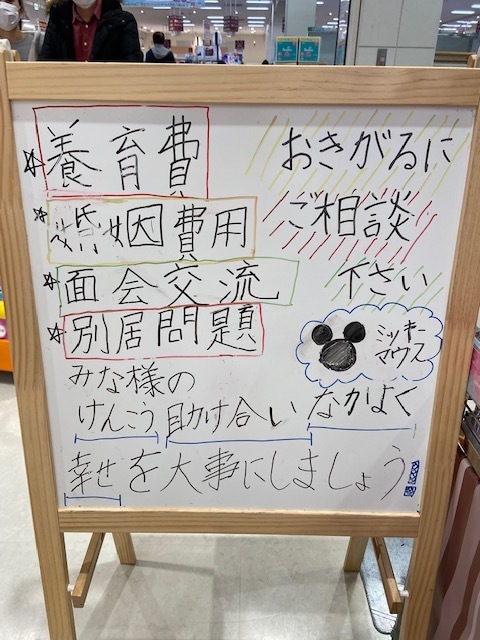 ☆養育費
☆婚姻費用
☆面会交流
☆別居問題
おきがるに
ご相談
下さい
ミッキー
マウス
みな様の
けんこう 助け合い なかよく
幸せを大事にしましょう!!